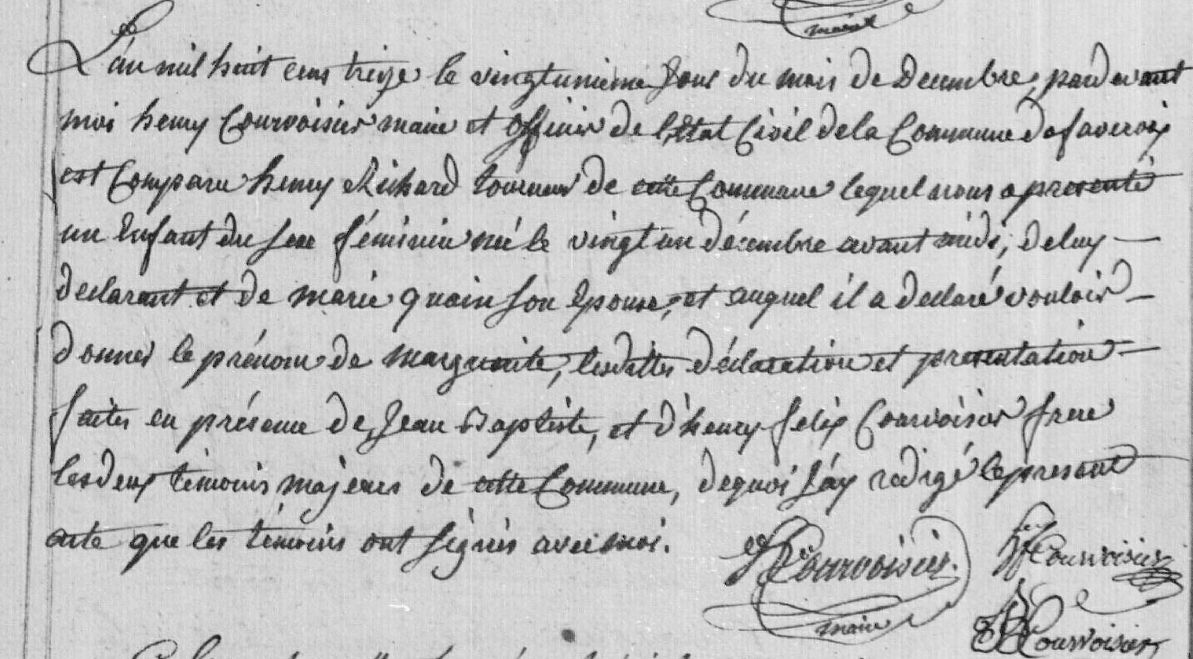 maire
L'an mil huit cens treize le vingtunieme jour du mois de Decembre, pardevant
moi henry Courvoisier maire et officier de l'Etat Civil de la Commune de faverois
est Comparu henry Richard tourneur de cette Commune lequel nous a presenté
un Enfant du sexe féminin né le vingt un décembre avant midi, de luy
declarant et de marie quain son Epouse, et auquel il a declaré vouloir
donner le prénom de marguerite, lesdittes déclaration et presentation
faites en présence de Jean Baptiste, et d'henry felix Courvoisier frere
les deux témoins majeurs de cette Commune, de quoi j'ay redigé le present
acte que les témoins ont signés avec moi.
H Courvoisier
maire
hf Courvoisier
JB Courvoisier